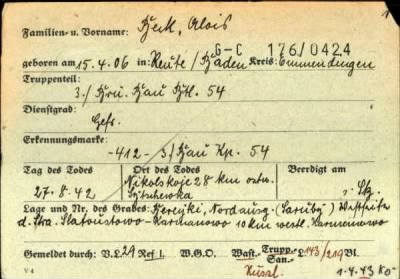 Familien- u. Vorname: Beck, Alois
G-C 176/0424
geboren am 15.4.06 in: Reute / Baden Kreis: Emmendingen
Truppenteil:
3./ Brü. Bau Btl. 54
Dienstgrad:
Gefr.
Erkennungsmarke:
-412- 3/ Bau Kp. 54
Tag des Todes Ort des Todes Beerdigt am
27.8.42 Nikolskoje 28 km ostw.
Sytschewka
Lage und Nr. des Grabes: Nordausg. Westseite
d. Str. Karmanowo 10 km westl. Karmanowo
Gemeldet durch: V.L. 29 Ref 1. W.G.O. Wast. Trupp. San. L 143/219 Vl.
V 4 1.4.43